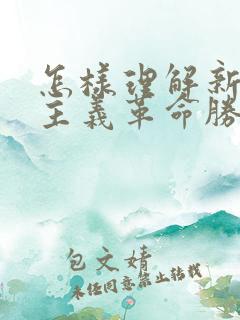 怎樣理解新
主義革命勝
包文婧
未经同意禁止转载